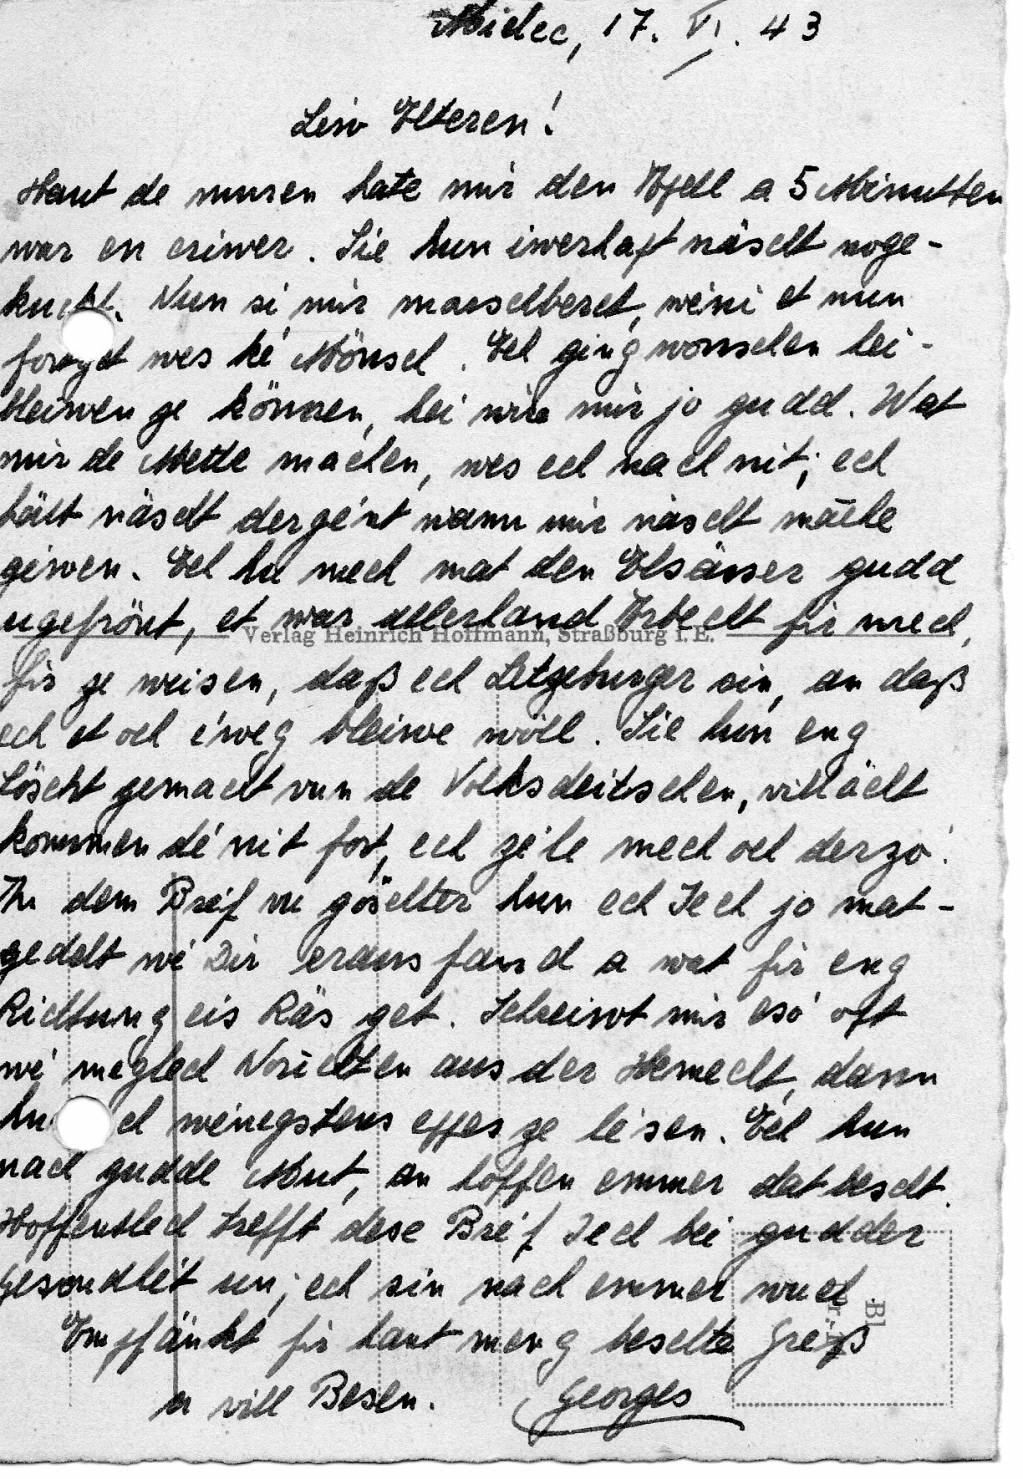 Mielec, 17. VI. 43
Leiw Elteren!
Haut de muren hate mir den Apell a 5 Minutten
war en eriwer. Sie hun iwerhapt näscht noge-
kuckt. Nun si mir marschberet, weini et nun
fortget wes ké Mönsch. Ech ging wonschen hei-
bleiwen ze können, hei wire mir jo gudd. Wat
mir de Mette machen, wes ech nach nit; ech
hält näscht dergént wann mir näscht mache
giwen. Ech hu mech mat den Elsässer gudd
ugefrönt, et war allerhand Arbecht fir mech,
Verlag Heinrich Hoffmann, Straßburg i. E.
fir ze weisen, daß ech Letzeburger sin, an daß
ech et och éweg bleiwe wöll. Sie hun eng
Löscht gemacht vun de Volksdeitschen, villächt
kommen dé nit fort, ech zéle mech och derzo!
An dem Bréf vu göschter hun ech Iech jo mat-
gedelt wé Dir eraus fand a wat fir eng
Richtung eis Räs get. Schreiwt mir esó oft
wé méglech Norichten aus der Hemecht, dann
hu ech wéinegstens eppes ze lésen. Ech hun
nach gudde Mut, an hoffen emmer dat bescht.
Hoffentlech trefft dese Bréf Iech bei gudder
Gesondhét un; ech sin nach emmer wuel
Empfänkt fir haut meng beschte Greß
a vill Besen. Georges